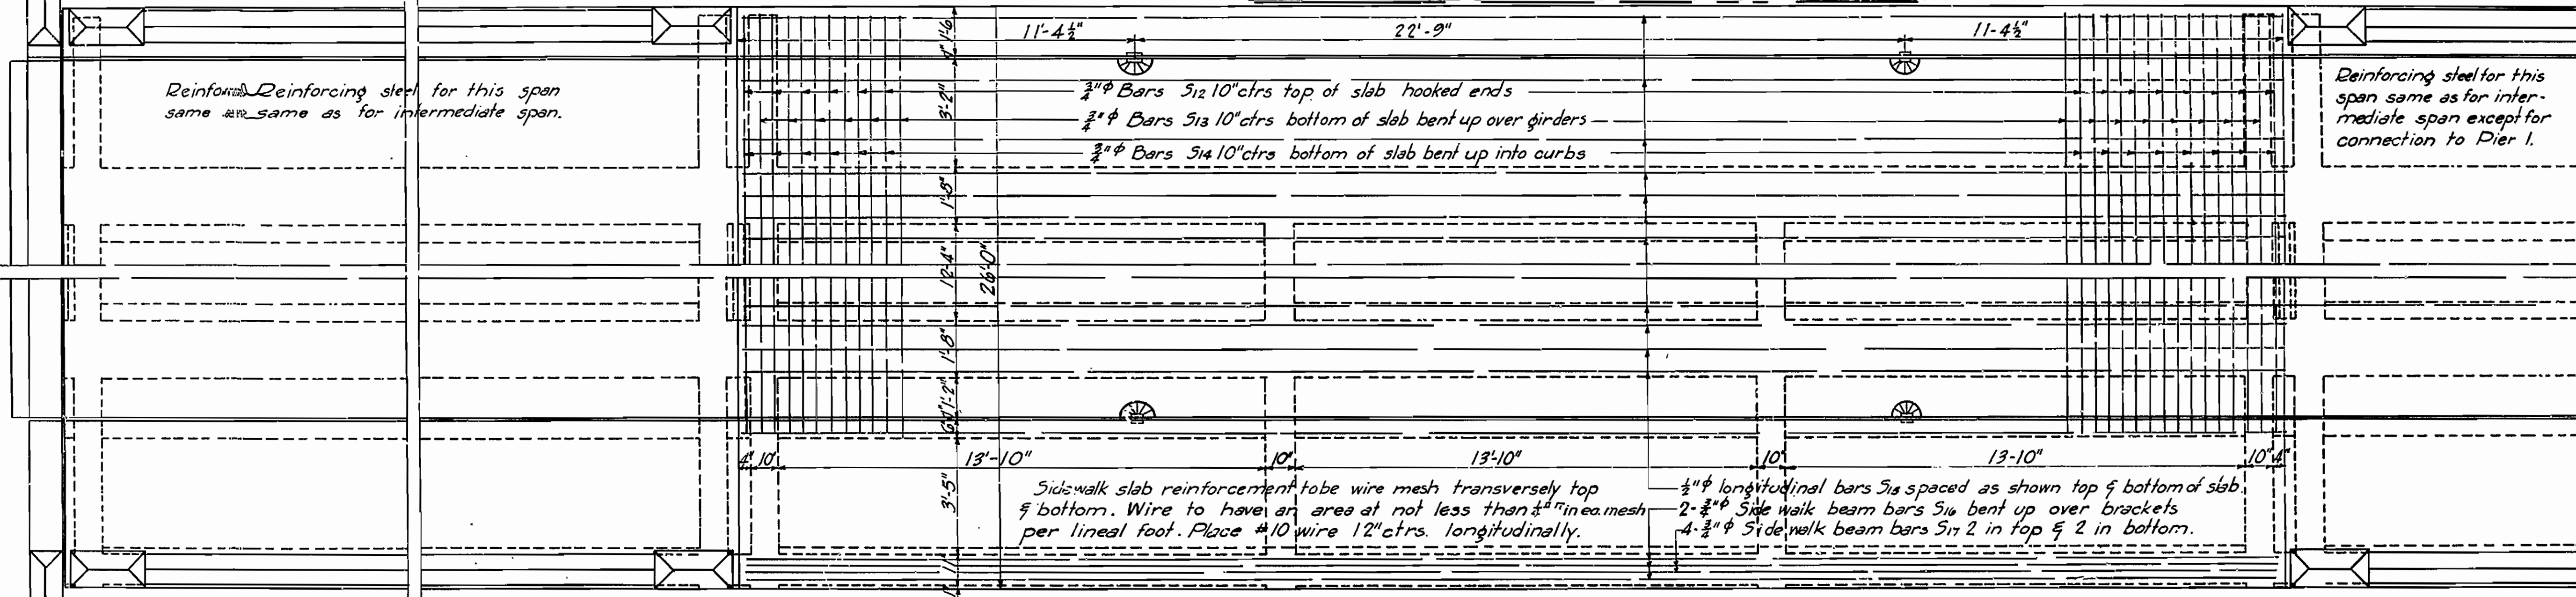 11'-4½" 22'-9" 11-4½"
1'-6
3'-2"
1'-8"
12'-4"
26'-0"
1'-8"
1'-2"
3'-5"
Reinforcing steel for this span
same same as for intermediate span.
¾"φ Bars S12 10"ctrs top of slab hooked ends
¾"φ Bars S13 10"ctrs bottom of slab bent up over girders
¾"φ Bars S14 10"ctrs bottom of slab bent up into curbs
Reinforcing steel for this
span same as for inter-
mediate span except for
connection to Pier 1.
4" 10" 13'-10" 10" 13'-10" 10" 13-10" 10" 4"
Sidewalk slab reinforcement to be wire mesh transversely top
& bottom. Wire to have an area at not less than in ea. mesh
per lineal foot. Place #10 wire 12"ctrs. longitudinally.
½"φ longitudinal bars S15 spaced as shown top & bottom of slab.
2-¾"φ Side walk beam bars S16 bent up over brackets
4-¾"φ Side walk beam bars S17 2 in top & 2 in bottom.